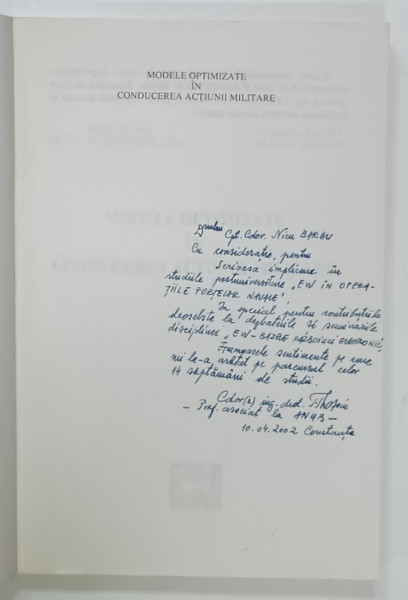 MODELE OPTIMIZATE
ÎN
CONDUCEREA ACŢIUNII MILITARE
Cpt. Cdor. Nicu BARBU
Cu consideraţie, pentru
Serioasa implicare în
studiile postuniversitare „EW ÎN OPERA-
ŢIILE FORŢELOR NAVALE".
În special pentru contribuţiile
deosebite la dezbaterile şi seminariile
disciplinei „EW - BAZELE RĂZBOIULUI ELECTRONIC",
Frumoasele sentimente pe care
mi le-a arătat pe parcursul celor
14 săptămâni de studii.
Cdor(r) ing. drd.
- Prof. asociat la ANMB -
10.04.2002 Constanţa